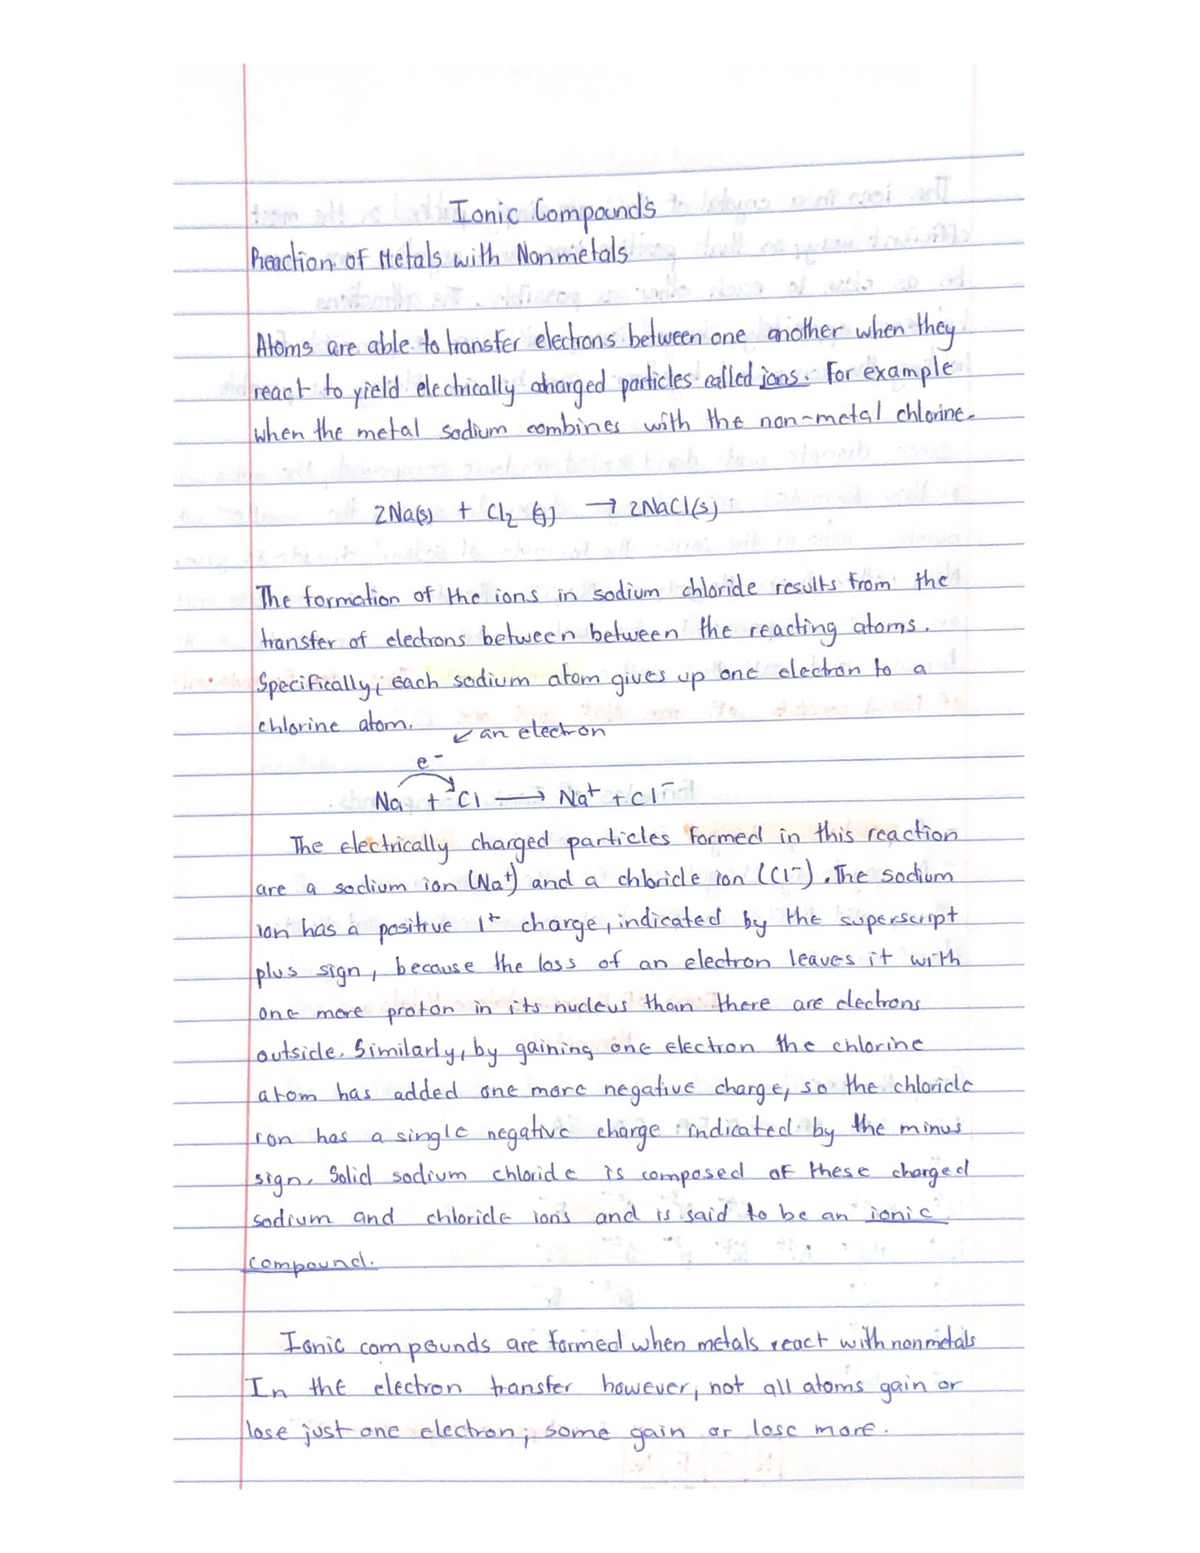 Ionic Compounds
Reaction of Metals with Nonmetals
Atoms are able to transfer electrons between one another when they
react to yield electrically charged particles called ions. For example
when the metal sodium combines with the non-metal chlorine.
2Na(s) + Cl₂ (g) → 2NaCl(s)
The formation of the ions in sodium chloride results from the
transfer of electrons between between the reacting atoms.
Specifically, each sodium atom gives up one electron to a
chlorine atom.
↙ an electron
e⁻
Na + Cl → Na⁺ + Cl⁻
The electrically charged particles formed in this reaction
are a sodium ion (Na⁺) and a chloride ion (Cl⁻). The sodium
ion has a positive 1⁺ charge, indicated by the superscript
plus sign, because the loss of an electron leaves it with
one more proton in its nucleus than there are electrons
outside. Similarly, by gaining one electron the chlorine
atom has added one more negative charge, so the chloride
ion has a single negative charge indicated by the minus
sign. Solid sodium chloride is composed of these charged
sodium and chloride ions and is said to be an ionic
compound.
Ionic compounds are formed when metals react with nonmetals
In the electron transfer however, not all atoms gain or
lose just one electron; some gain or lose more.